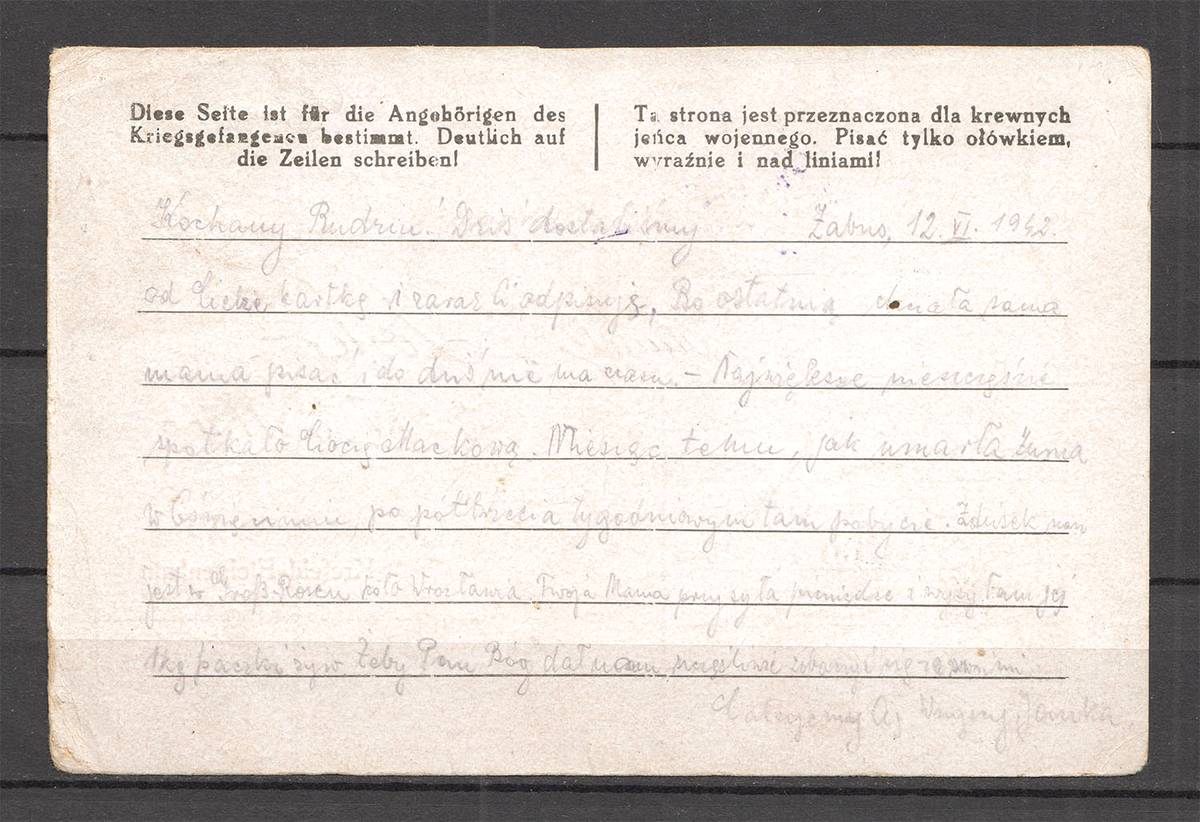 Diese Seite ist für die Angehörigen des
Kriegsgefangenen bestimmt. Deutlich auf
die Zeilen schreiben!
Ta strona jest przeznaczona dla krewnych
jeńca wojennego. Pisać tylko ołówkiem,
wyraźnie i nad liniami!
Kochany Rudziu! Dziś dostaliśmy Żabno, 12. VI. 1942.
od Ciebie kartkę i zaraz Ci odpisuję, Bo ostatnią chciała sama
mama pisać i do dziś nie ma czasu. – Największe nieszczęście
spotkało Ciocię Maćkową. Miesiąc temu, jak umarła Zunia
w Oświęcimiu, po półtrzecia tygodniowym tam pobycie. Zdzisek
jest w Groß-Rosen koło Wrocławia. Twoja Mama przysyła pieniądze i wysyłam jej
1kg paczki żyw. Żeby Pan Bóg dał nam szczęśliwie zobaczyć się
Całujemy Cię Wszyscy, Janka